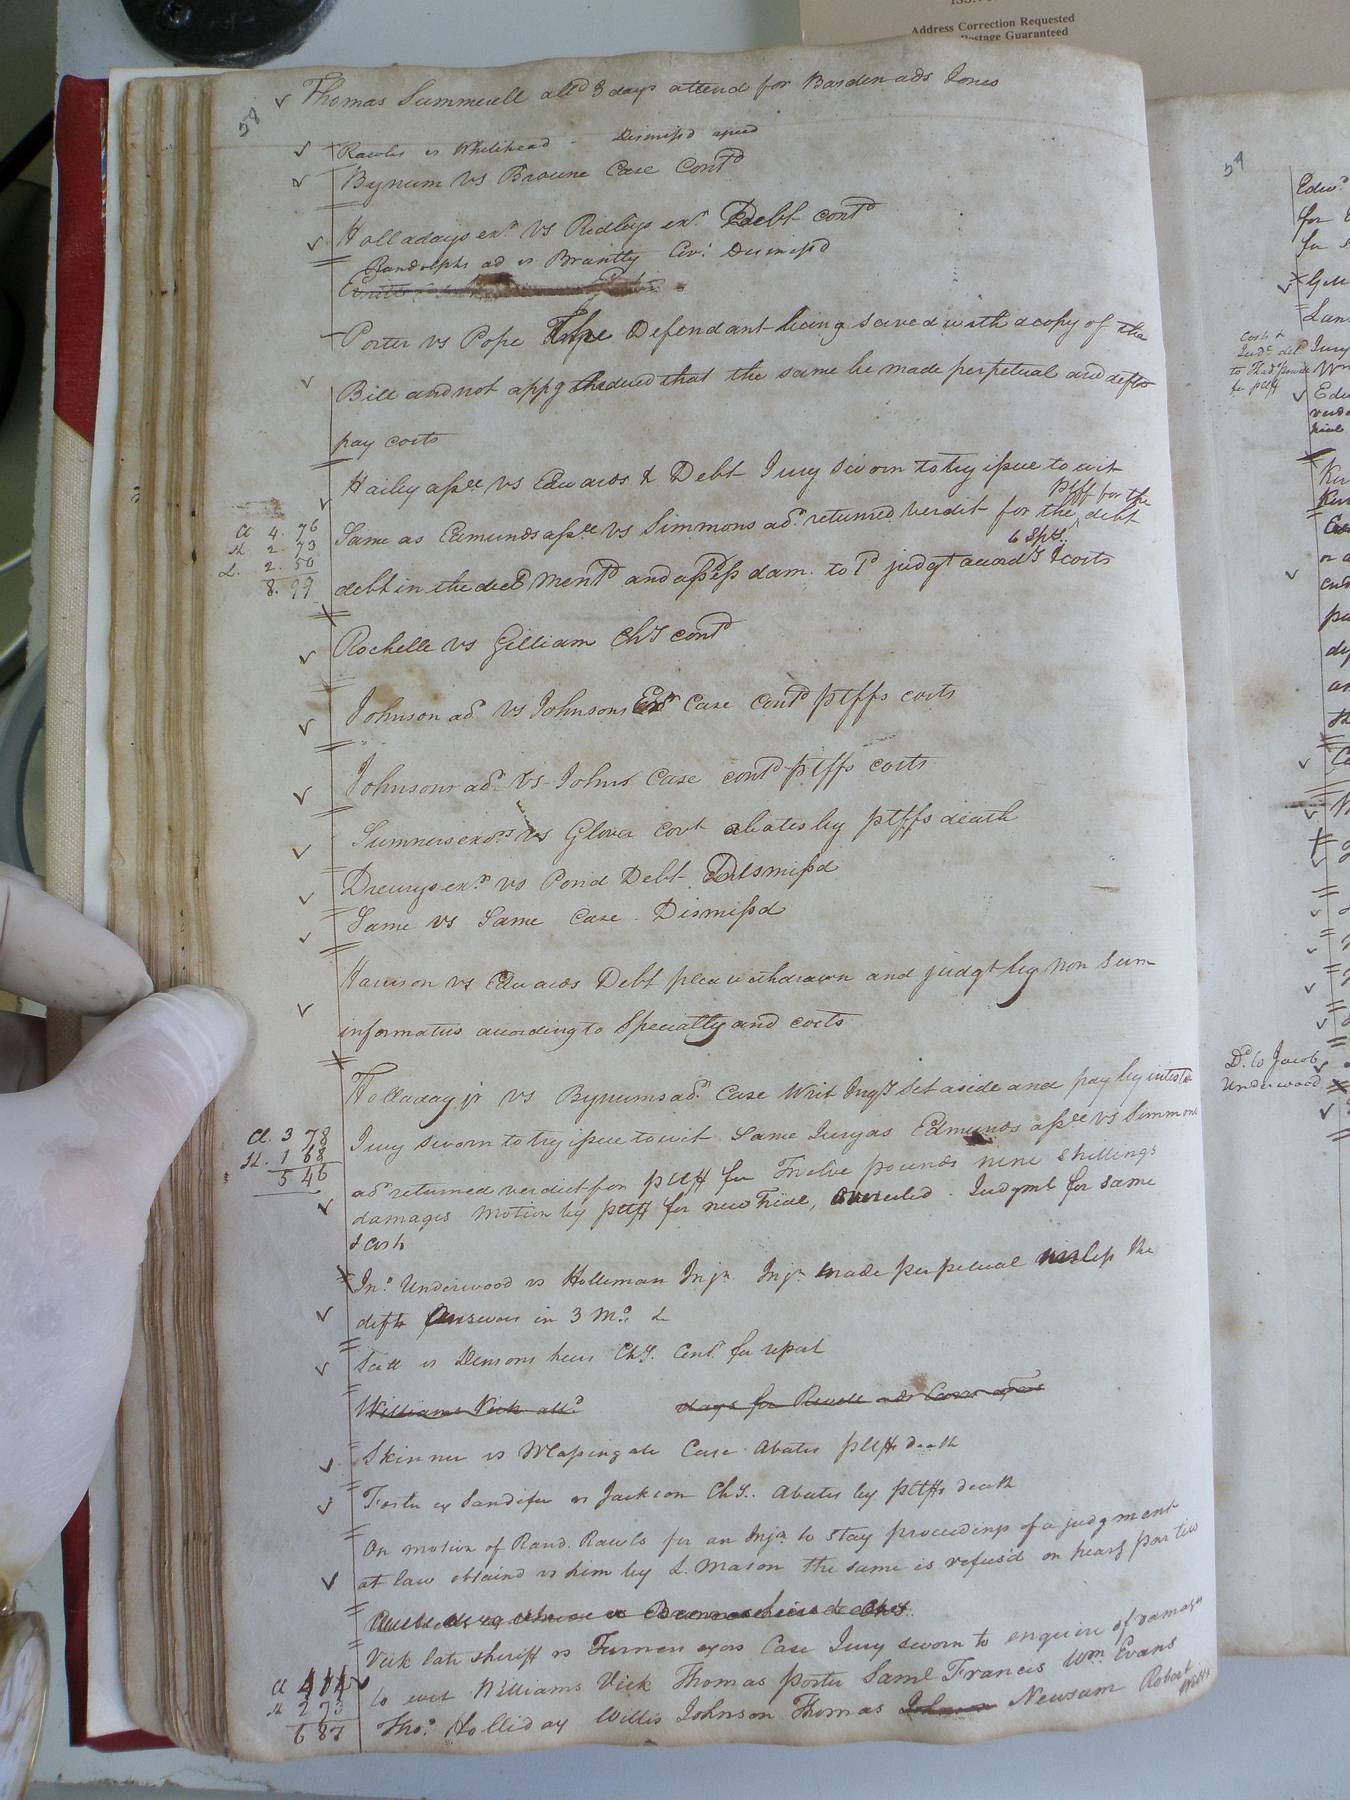 Address Correction Requested
Postage Guaranteed
58
Thomas Summerell alld 8 days attend for Barden ads Jones
Rawls vs Whitehead - Dismissd agreed
Bynum vs Browne Case Contd
Holladays exr. vs Ridleys exr. Debt contd
Randolphs ad vs Brantly Cov: Dismissd
Porter vs Pope The Defendant being served with a copy of the
Bill and not appg ordered that the same be made perpetual and defts
pay costs
Hailey assee vs Edwards & Debt Jury sworn to try issue to wit
ptff for the
Same as Edmunds assee vs Simmons ad. returned verdit for the debt
Cl 4. 76
St 2. 73
L. 2. 50
8. 99
debt in the decl mentd and assess dam. to 1d judgt accordg & costs
Rochelle vs Gilliam Chy contd
Johnson ad vs Johnsons Exr Case Contd ptffs costs
Johnsons ad. vs Johns Case contd ptffs costs
Sumners exors vs Glover Covt abates by ptffs death
Drewrys exr. vs Pond Debt Dismissd
Same vs Same Case. Dismissd
Harrison vs Edwards Debt plea withdrawn and judgt by non Sum
informatus according to Specialty and costs
Holladay jr vs Bynums ad. Case Writ Inqy set aside and pay
Cl. 3 78
St. 1 68
5 46
Jury sworn to try issue to wit. Same Jury as Edmunds assee vs Simmons
ad. returned verdict for pltff for Twelve pounds nine shillings
damages Motion by pltff for new Trial, overruled. Judgmt for same
& costs
Jno. Underwood vs Holleman Injn. Injn made perpetual unless the
defts Answers in 3 Mo. &
Scott vs Densons heirs Chy. Cont. for report
Williams Vick alld days for Revell ads
Skinner vs Massingale Case Abates pltffs death
Foster ex Sandifer vs Jackson Chy. Abates by pltffs death
On motion of Rand. Rawls for an Injn to stay proceedings of a judgment
at law obtaind vs him by L. Mason the same is refus'd on hearg parties
Vick late sheriff vs Turners exors Case Jury sworn to enquire of damages
to wit Williams Vick Thomas porter Saml Francis Wm. Evans
Cl 414
St 273
687
Tho. Holliday Willis Johnson Thomas Johnson Newsum Robert
59
Edwd.
for
Costs &
Judt. del
for pltff
Jury
Do. to Jacob
Underwood